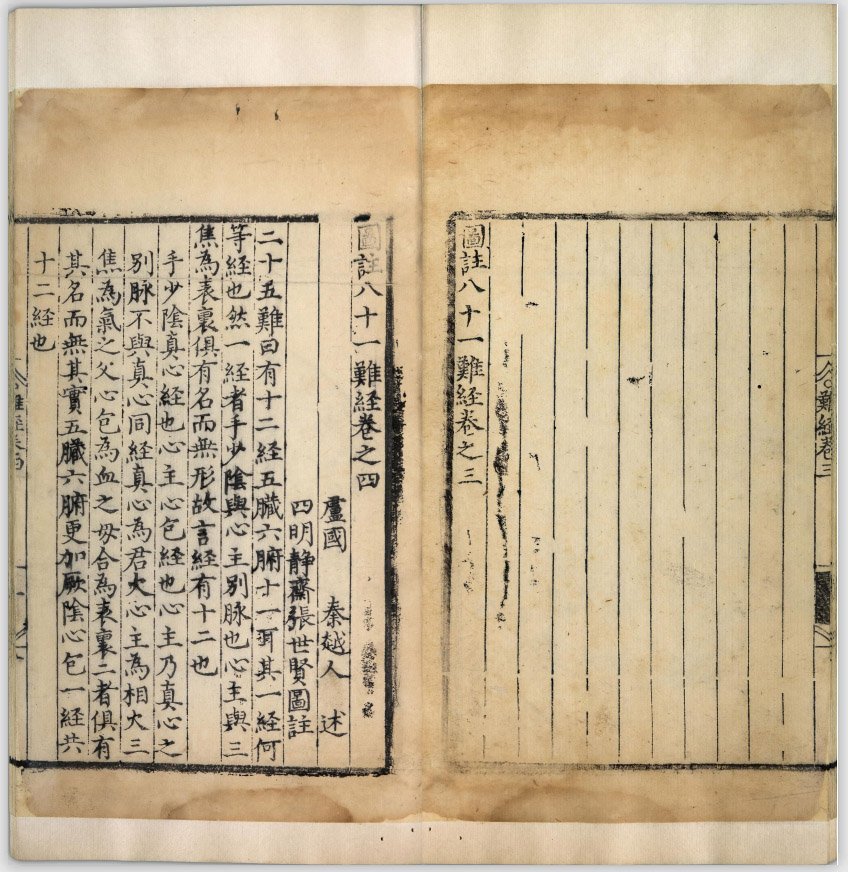 難經卷三
圖註八十一難経卷之三
圖註八十一難経卷之四
盧國　秦越人　述
四明静齋張世賢圖註
二十五難曰有十二経五臟六腑十一耳其一経何
等経也然一経者手少陰與心主别脉也心主與三
焦為表裏俱有名而無形故言経有十二也
手少陰真心経也心主心包経也心主乃真心之
别脉不與真心同経真心為君火心主為相火三
焦為氣之父心包為血之母合為表裏二者俱有
其名而無其實五臟六腑更加厥陰心包一経共
十二経也